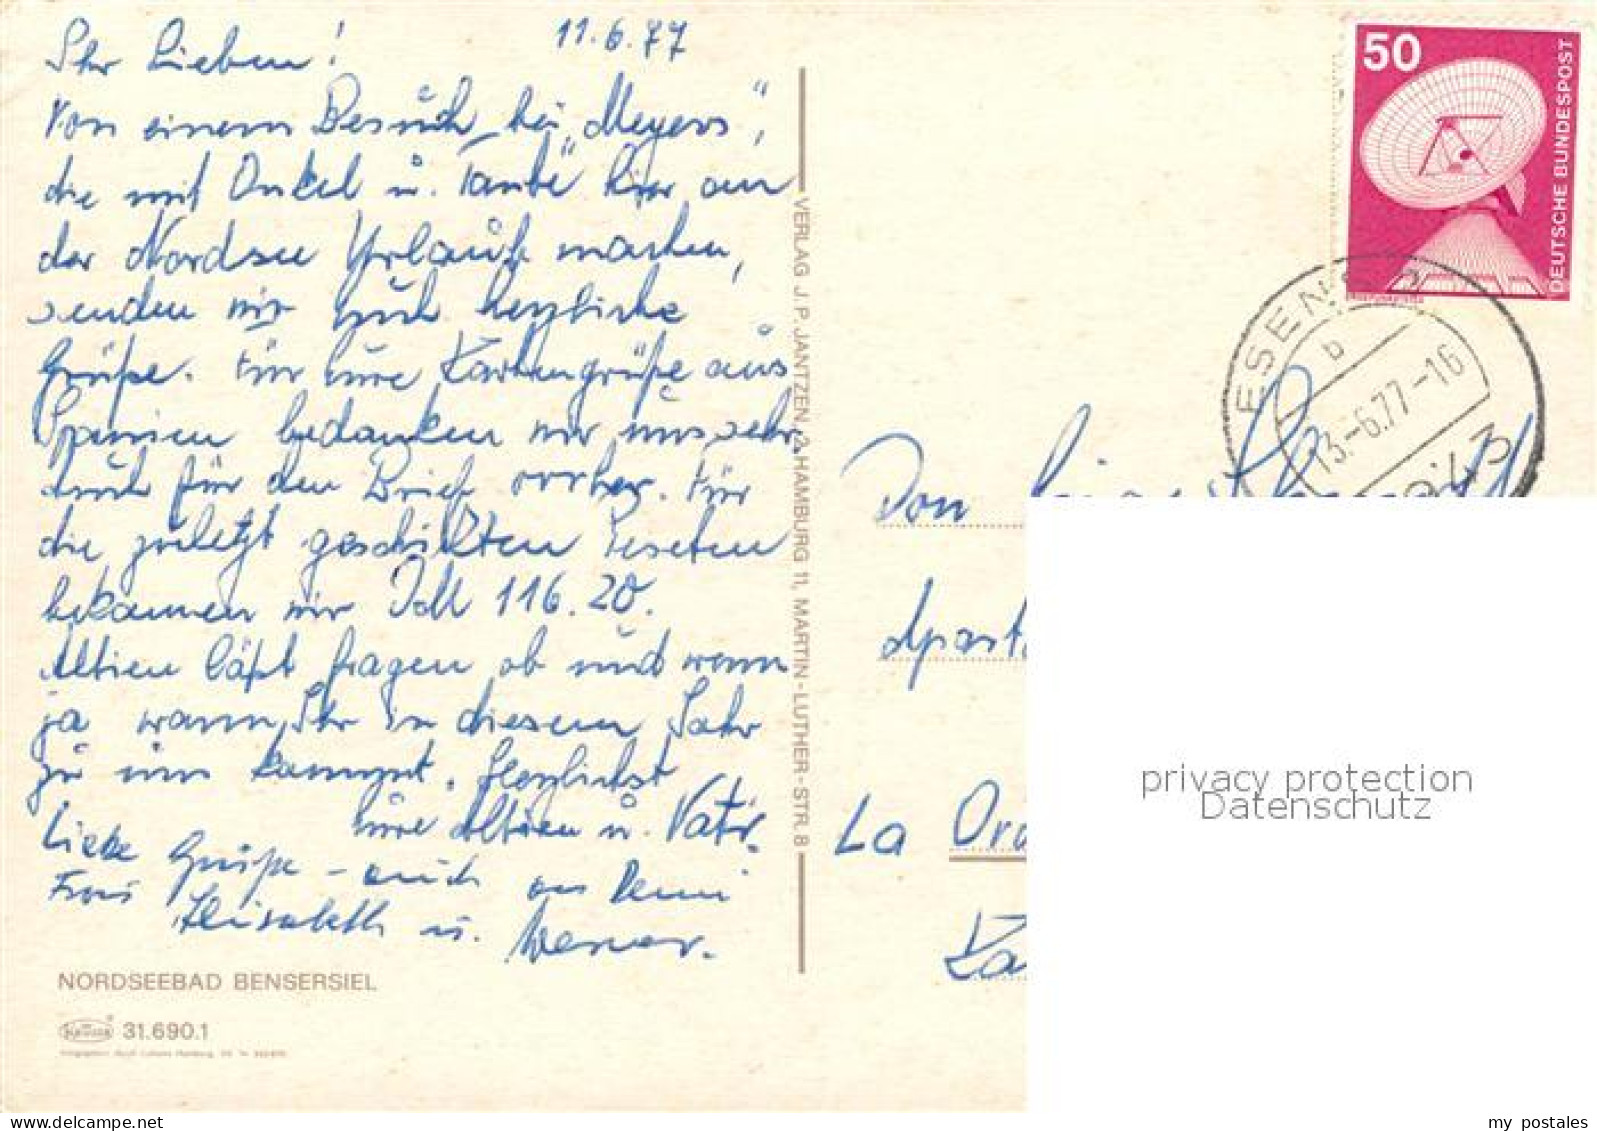 Ihr Lieben! 11.6.77
Von einem Besuch bei "Meyers",
die mit Onkel u. Tante hier an
der Nordsee Urlaub machen,
senden wir Euch herzliche
Grüße. Für Eure Kartengrüße aus
Spanien bedanken wir uns sehr,
auch für den Brief vorher. Für
die zuletzt geschickten Peseten
bekamen wir DM 116.20.
läßt fragen ob und wenn
ja wann Ihr in diesem Jahr
zu uns kommt. Herzlichst
Eure u. Vati.
Liebe Grüße - auch an
Elisabeth u. Werner.
NORDSEEBAD BENSERSIEL
31.690.1
VERLAG J. P. JANTZEN, 2 HAMBURG 11, MARTIN-LUTHER-STR. 8
50
DEUTSCHE BUNDESPOST
ESENS
b
13.-6.77-16
Don
Apart
La Oro
privacy protection
Datenschutz
www.delcampe.net
my_postales